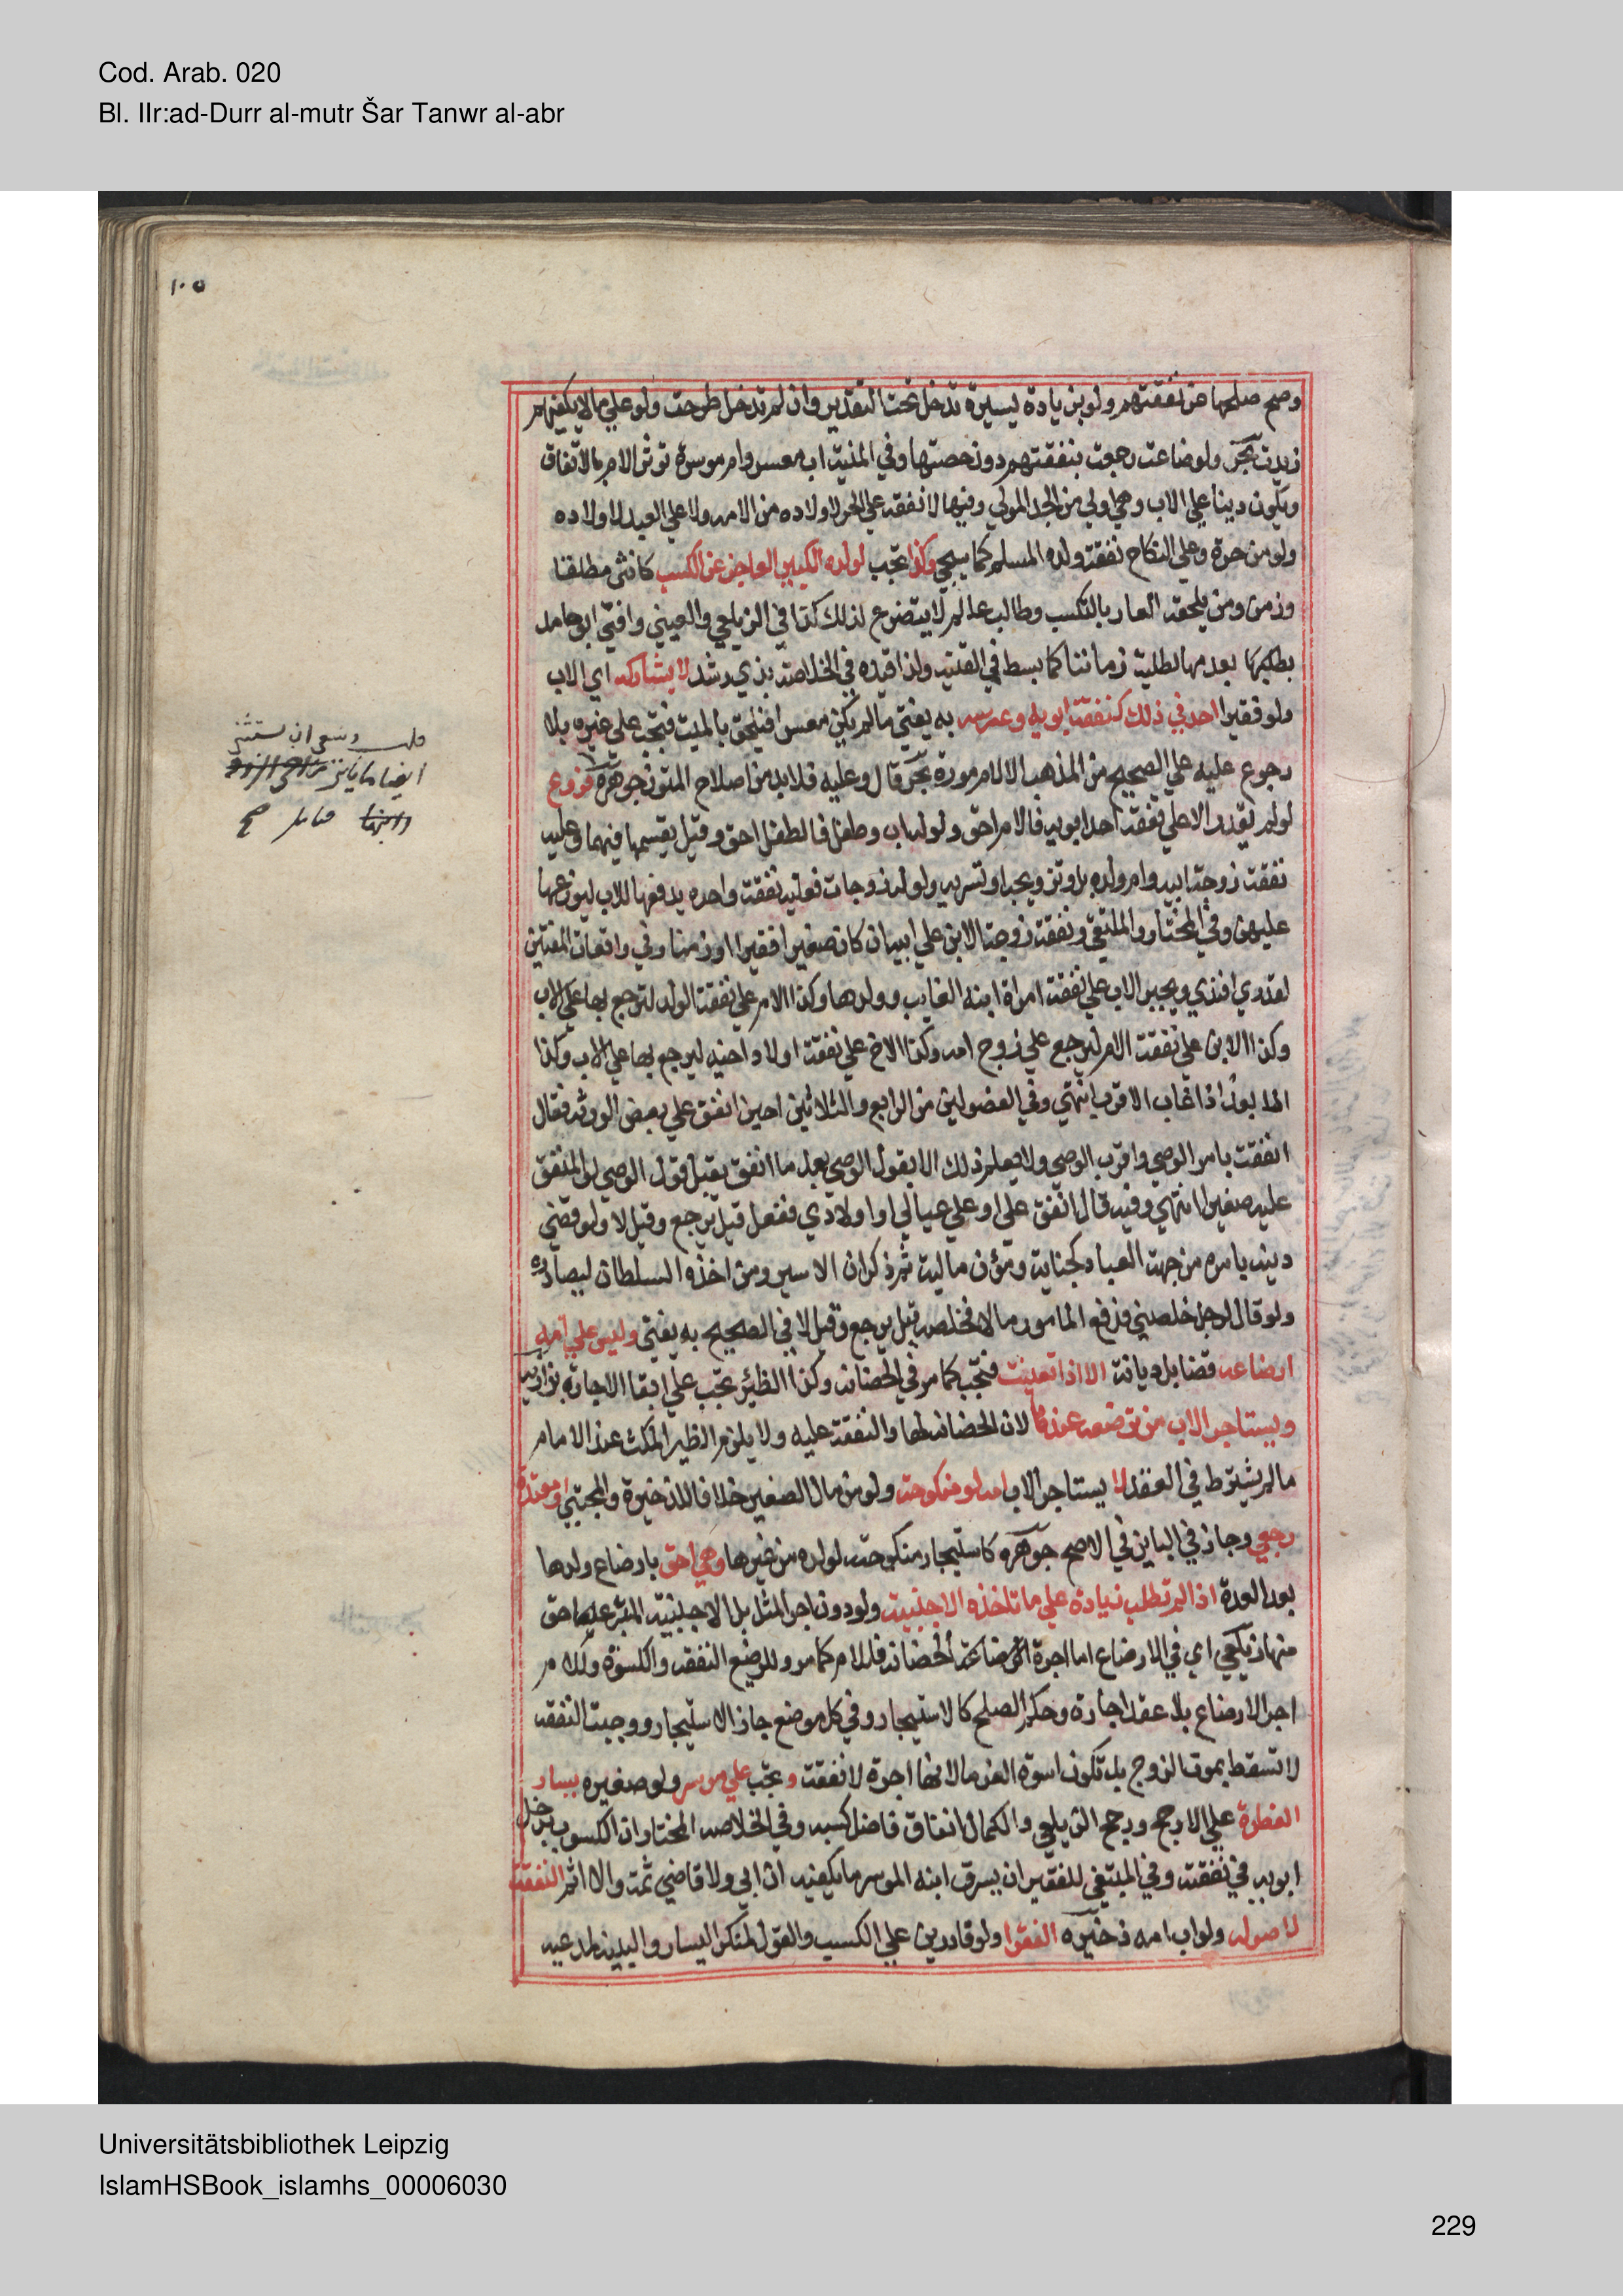 Cod. Arab. 020
Bl. IIr:ad-Durr al-mutr Šar Tanwr al-abr
١٠٥
وصح صلحها عن نفقتهم ولو بزيادة يسيرة تدخل تحت التقدير وان لم تدخل طرحت ولو علي مالا يكفيهم
زيدت بحر ولو ضاعت رجعت بنفقتهم دون حصتها وفي المنية اب معسر وام موسرة تؤثر الام بالانفاق
ويكون دينا علي الاب وهي اولي من الجد المولي وفيها لا نفقه علي الحر لاولاده من الامه ولا علي العبد لاولاده
ولو من حرة وعلي النكاح نفقة ولده المسلم كما يجي وكذا تجب لولده الكبير العاجز عن الكسب كانثي مطلقا
وزمن ومن يلحقه العار بالتكسب وطالب علم لا يتفرغ لذلك كذا في الزيلعي والعيني وافتي ابو حامد
بعدمها لطلبة زماننا كما بسط في القنيه ولذا قيده في الخلاصة بذي رشد لا يشاركه اي الاب
ولو فقيرا احد في ذلك كنفقة ابويه وعرسه به يفتي مالم يكن معسرا فيلحق بالميت فتجب علي غيره بلا
رجوع عليه علي الصحيح من المذهب الا لام موسرة بحر قال وعليه فلابد من اصلاح المتون جوهره فروع
لو لم يقدر الا علي نفقة احد ابويه فالام احق ولو له اب وطفل فالطفل احق وقيل يقسمها فيهما وعليه
نفقة زوجة ابيه وام ولده بل وتزويجه او تسريه ولو له زوجات فعليه نفقة واحده يدفعها للاب ليوزعها
عليهن وفي المختار والملتقي ونفقة زوجة الابن علي ابيه ان كان صغيرا فقيرا او زمنا وفي واقعات المفتين
لقدري افندي ويجبر الاب علي نفقة امراة ابنه الغايب وولدها وكذا الام علي نفقة الولد لترجع بها علي الاب
وكذا الابن علي نفقة الام ليرجع علي زوج امه وكذا الاخ علي نفقة اولاد اخيه ليرجع بها علي الاب وكذا
الابعد اذا غاب الاقرب انتهي وفي الفصولين من الرابع والثلاثين اجنبي انفق علي بعض الورثه فقال
انفقت بامر الوصي واقر به الوصي ولا يعلم ذلك الا بقول الوصي بعد ما انفق يقبل قول الوصي لو المنفق
عليه صغيرا انتهي وفيه قال انفق علي او علي عيالي او اولادي ففعل قيل يرجع وقيل لا ولو قضي
دينه بامره من جهت العباد كجناية ومؤن مالية ثم ذكر ان الاسير ومن اخذه السلطان ليصادره
ولو قال لرجل خلصني فدفع المامور مالا فخلصه قيل يرجع وقيل لا في الصحيح به يفتي وليس علي امه
ارضاعه قضا بل ديانت الا اذا تعينت فتجب كما مر في الحضانه وكذا الظئر تجب علي ابقا الاجارة بزازيه
ويستاجر الاب من ترضعه عندها لان الحضانه لها والنفقة عليه ولا يلزم الظير المكث عند الامام
مالم يشترط في العقد لا يستاجر الاب امه لو منكوحته ولو من مال الصغير خلافا للذخيرة والمجتبي او معتدة
رجعي وجاز في الباين في الاصح جوهره كاستيجار منكوحته لولده من غيرها وهي احق بارضاع ولدها
بعد العدة اذا لم تطلب زيادة علي ما تاخذه الاجنبية ولو دون اجر المثل بل الاجنبية المتبرعة احق
منها زيلعي اي في الارضاع اما اجرة الحضانه فللام كما مر وللرضيع النفقه والكسوة وللام
اجر الارضاع بلا عقد اجارة وحكم الصلح كالاستيجار وفي كل موضع جاز الاستيجار ووجبت النفقه
لا تسقط بموت الزوج بل تكون اسوة الغرما لانها اجرة لا نفقت وتجب علي موسر ولو صغيره يسار
الفطرة علي الارجح ورجح الزيلعي والكمال انفاق فاضل كسبه وفي الخلاصه المختار ان الكسوب يدخل
ابويه في نفقته وفي المبتغي للفقير ان يسرق ابنه الموسر ما يكفيه ان ابي ولا قاضي ثمت والا اثم النفقة
لاصوله ولو اب امه ذخيره الفقرا ولو قادرين علي الكسب والقول لمنكر اليسار والبينه لمدعيه
Universitätsbibliothek Leipzig
IslamHSBook_islamhs_00006030
229